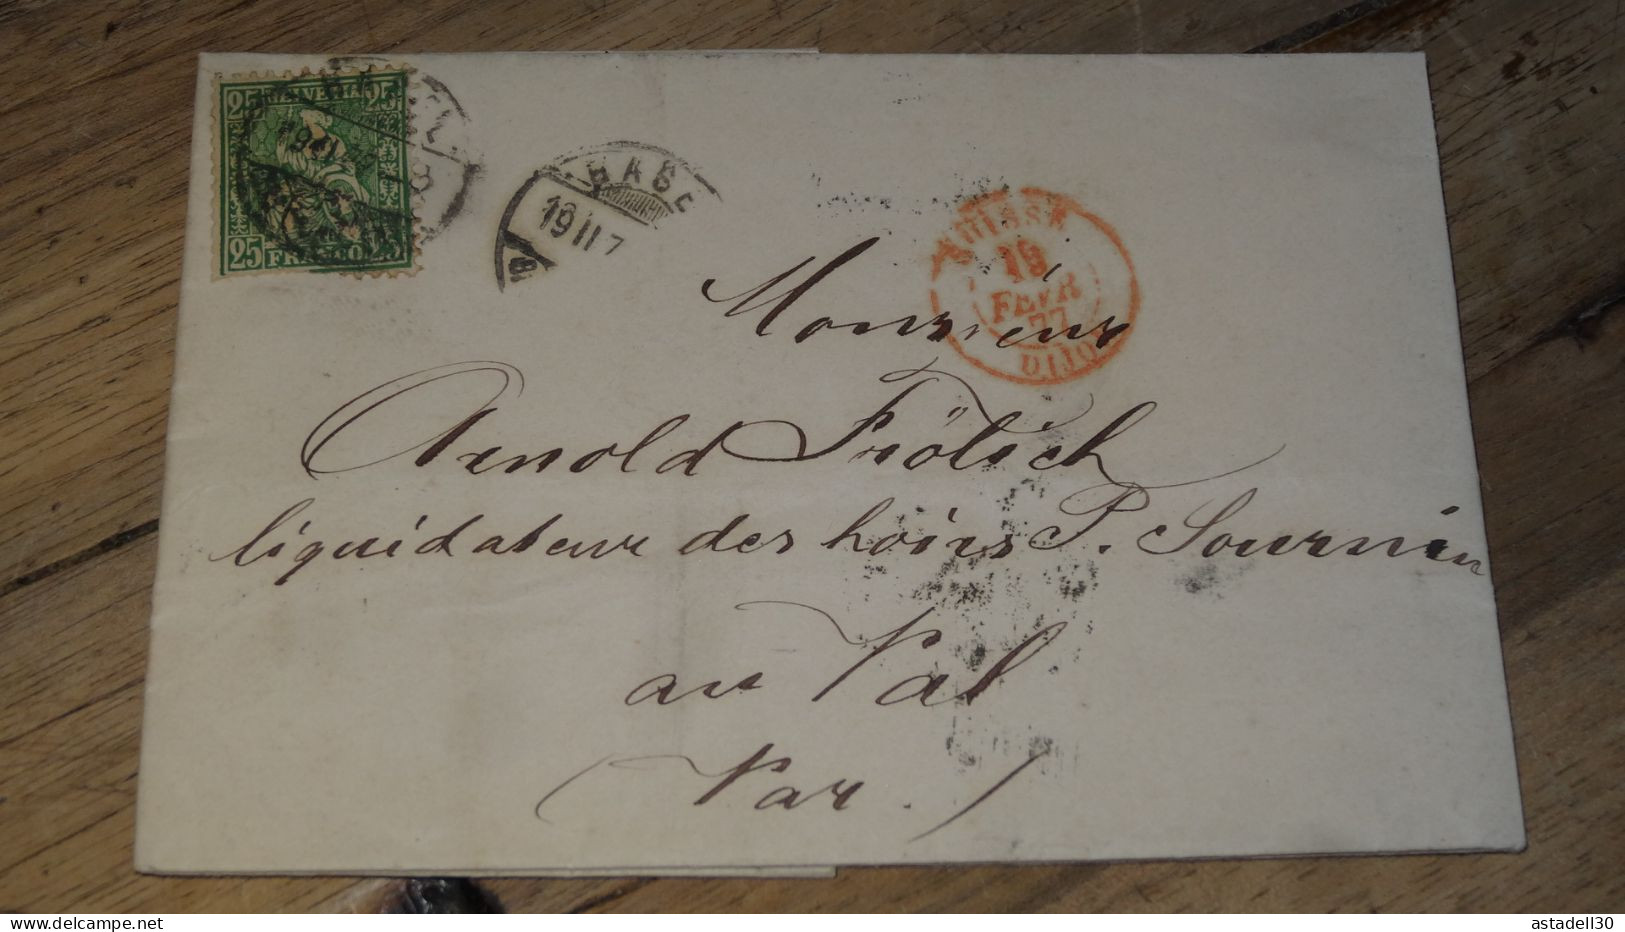 25 HELVETIA 25
25 FRANCO 25
BASEL
BASE
19 II 7
SUISSE
19
FEVR
77
DIJO
Monsieur
Arnold Frölich
liquidateur des hoirs P. Fournier
au Val
(Var.)
astadell30
delcampe.net